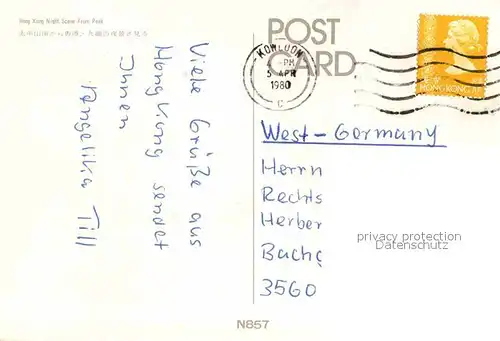 Hong Kong Night Scene From Peak
太平山頂から香港と九龍の夜景を見る
POST
CARD
KOWLOON
PM
5 APR
1980
C
HONG KONG
Viele Grüße aus
Hong Kong sendet
Ihnen
Angelika Till
West-Germany
Herrn
Rechts
Herber
Bach
3560
privacy protection
Datenschutz
N857